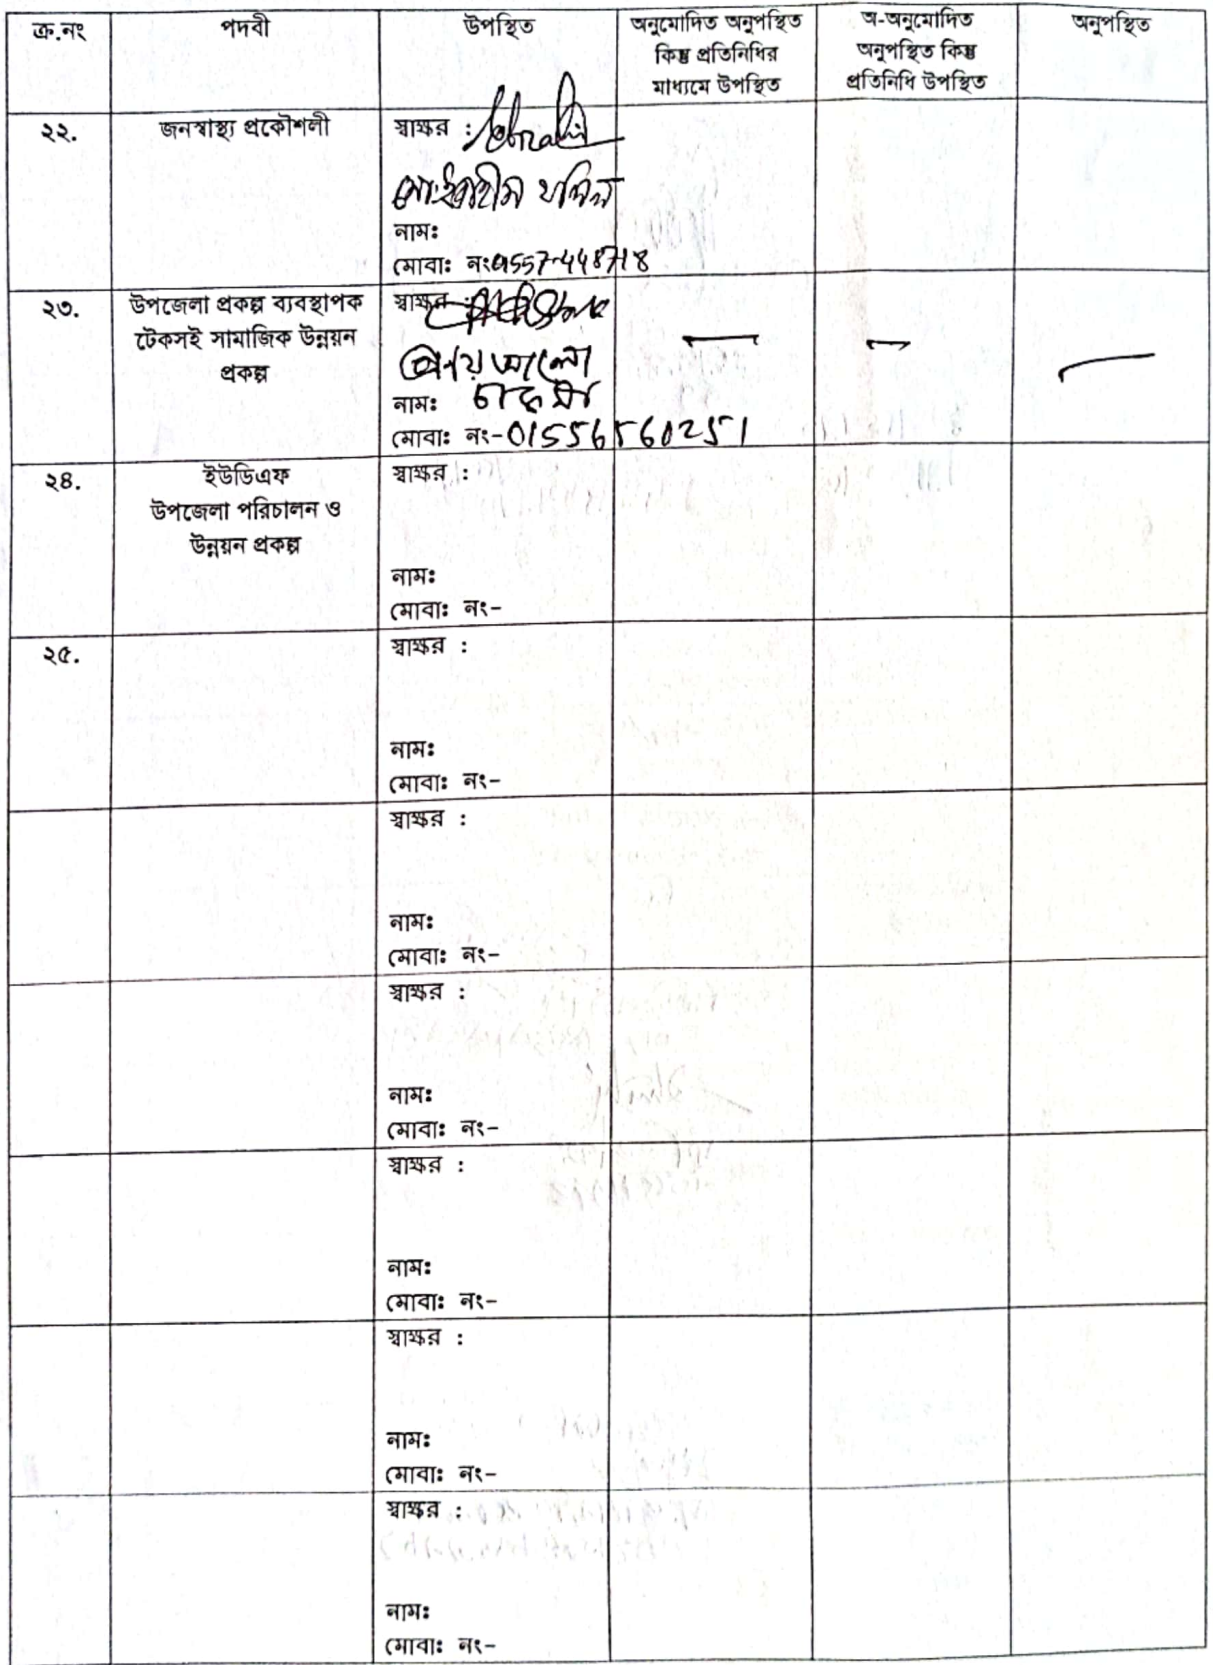 ক্র.নং পদবী উপস্থিত অনুমোদিত অনুপস্থিত কিন্তু প্রতিনিধির মাধ্যমে উপস্থিত অ-অনুমোদিত অনুপস্থিত কিন্তু প্রতিনিধি উপস্থিত অনুপস্থিত
২২. জনস্বাস্থ্য প্রকৌশলী স্বাক্ষর :
নাম:
মোবা: নং01557-448718
২৩. উপজেলা প্রকল্প ব্যবস্থাপক
টেকসই সামাজিক উন্নয়ন
প্রকল্প
স্বাক্ষর :
নাম: চাকমা
মোবা: নং-01556560251
২৪. ইউডিএফ
উপজেলা পরিচালন ও
উন্নয়ন প্রকল্প
স্বাক্ষর :
নাম:
মোবা: নং-
২৫. স্বাক্ষর :
নাম:
মোবা: নং-
স্বাক্ষর :
নাম:
মোবা: নং-
স্বাক্ষর :
নাম:
মোবা: নং-
স্বাক্ষর :
নাম:
মোবা: নং-
স্বাক্ষর :
নাম:
মোবা: নং-
স্বাক্ষর :
নাম:
মোবা: নং-